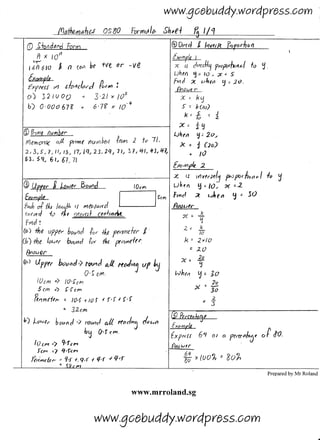 www.gcebuddy.wordpress.com
Mathematics 0580 Formula Sheet Pg 1/9
① Standard Form
A x 10ⁿ
n can be +ve or -ve
Example
Express in standard form :
a) 321000 = 3.21 x 10⁵
b) 0.000678 = 6.78 x 10⁻⁴
② Prime number
Memorise all prime number from 2 to 71.
2, 3, 5, 7, 11, 13, 17, 19, 23, 29, 31, 37, 41, 43, 47,
53, 59, 61, 67, 71
③ Upper & Lower Bound
10cm
5cm
Example
Each of the length is measured
correct to the nearest centimetre.
Find :
(a) the upper bound for the perimeter &
(b) the lower bound for the perimeter.
Answer
(a) Upper bound → round all reading up by
0.5 cm
10cm → 10.5cm
5cm → 5.5cm
Perimeter = 10.5 + 10.5 + 5.5 + 5.5
= 32cm
b) Lower bound → round all reading down
by 0.5cm
10cm → 9.5cm
5cm → 4.5cm
Perimeter = 9.5 + 9.5 + 4.5 + 4.5
Direct & Inverse Proportion
Example 1
x is directly proportional to y.
When y = 10, x = 5
Find x when y = 20.
Answer
x = ky
5 = k(10)
k = 5/10 = 1/2
x = 1/2 y
When y = 20,
x = 1/2 (20)
= 10
Example 2
x is inversely proportional to y
When y = 10, x = 2
Find x when y = 30
Answer
x = k/y
2 = k/10
k = 2x10
= 20
x = 20/y
When y = 30
x = 20/30
= 2/3
Percentage
Example
Express 64 as a percentage of 80.
Answer
64/80 x 100% = 80%
Prepared by Mr Roland
www.mrroland.sg
www.gcebuddy.wordpress.com